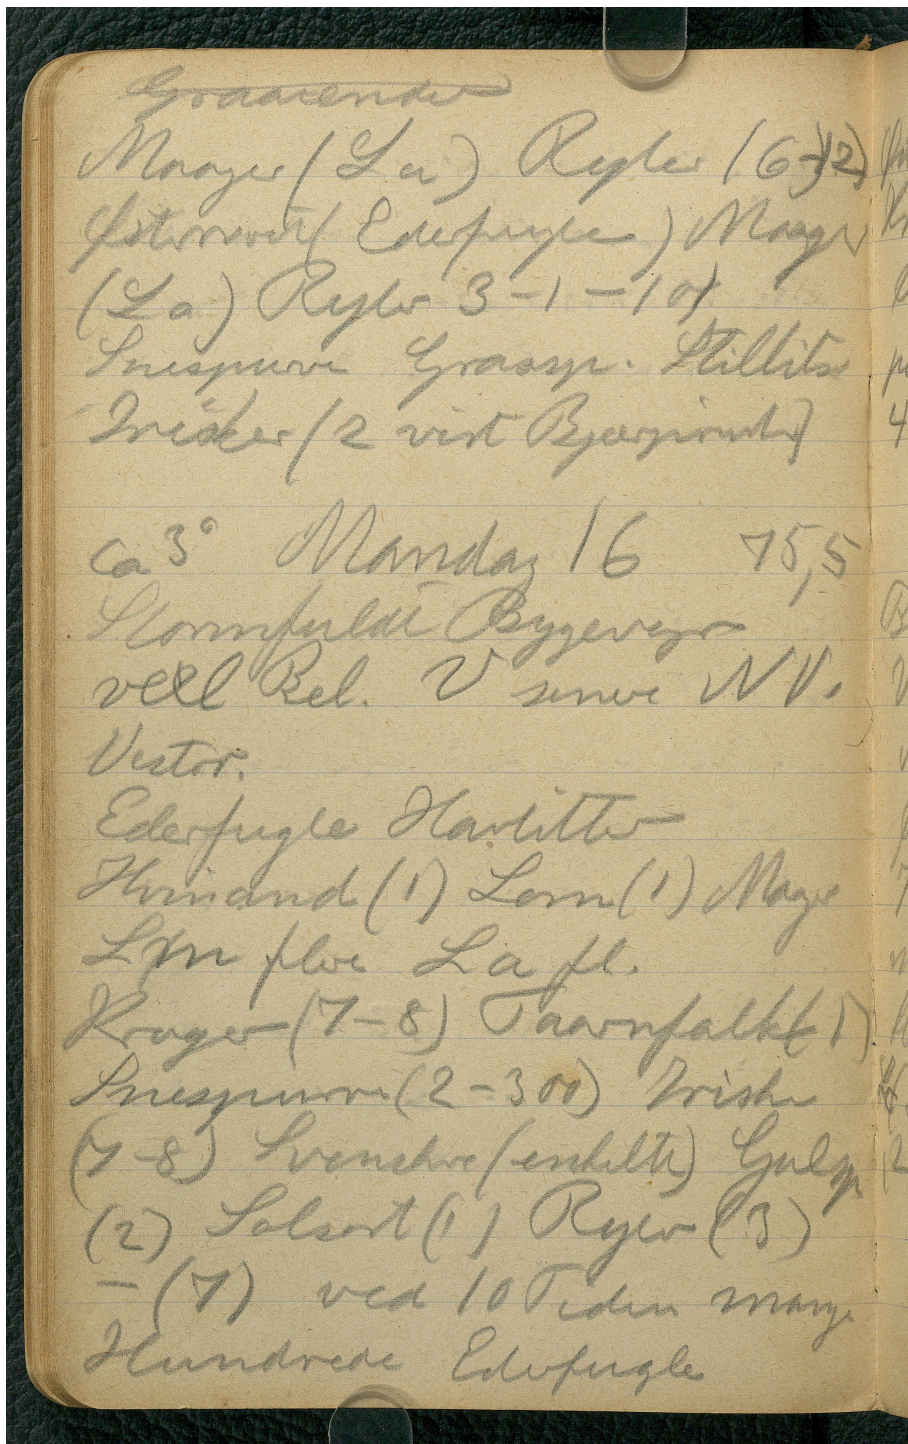 Graaænder
Maager (La) Ryler (6-12)
Østerrevet (Ederfugle) Maager
(La) Ryler 3-1-10)
Snespurve Graasp. Stillits
Irisker (2 vist Bjergirisker)
ca 3° Mandag 16 75,5
Stormfuldt Bygevejr
vexl Bel. V senere NV.
Vestor.
Ederfugle Havlitter
Hvinand (1) Lom (1) Maager
Lm flere La fl.
Krager (7-8) Taarnfalk (1)
Snespurve (2-300) Iriske
(7-8) Svenskere (enkelte) Gulsp
(2) Solsort (1) Ryler (3)
- (7) ved 10 Tiden mange
Hundrede Ederfugle